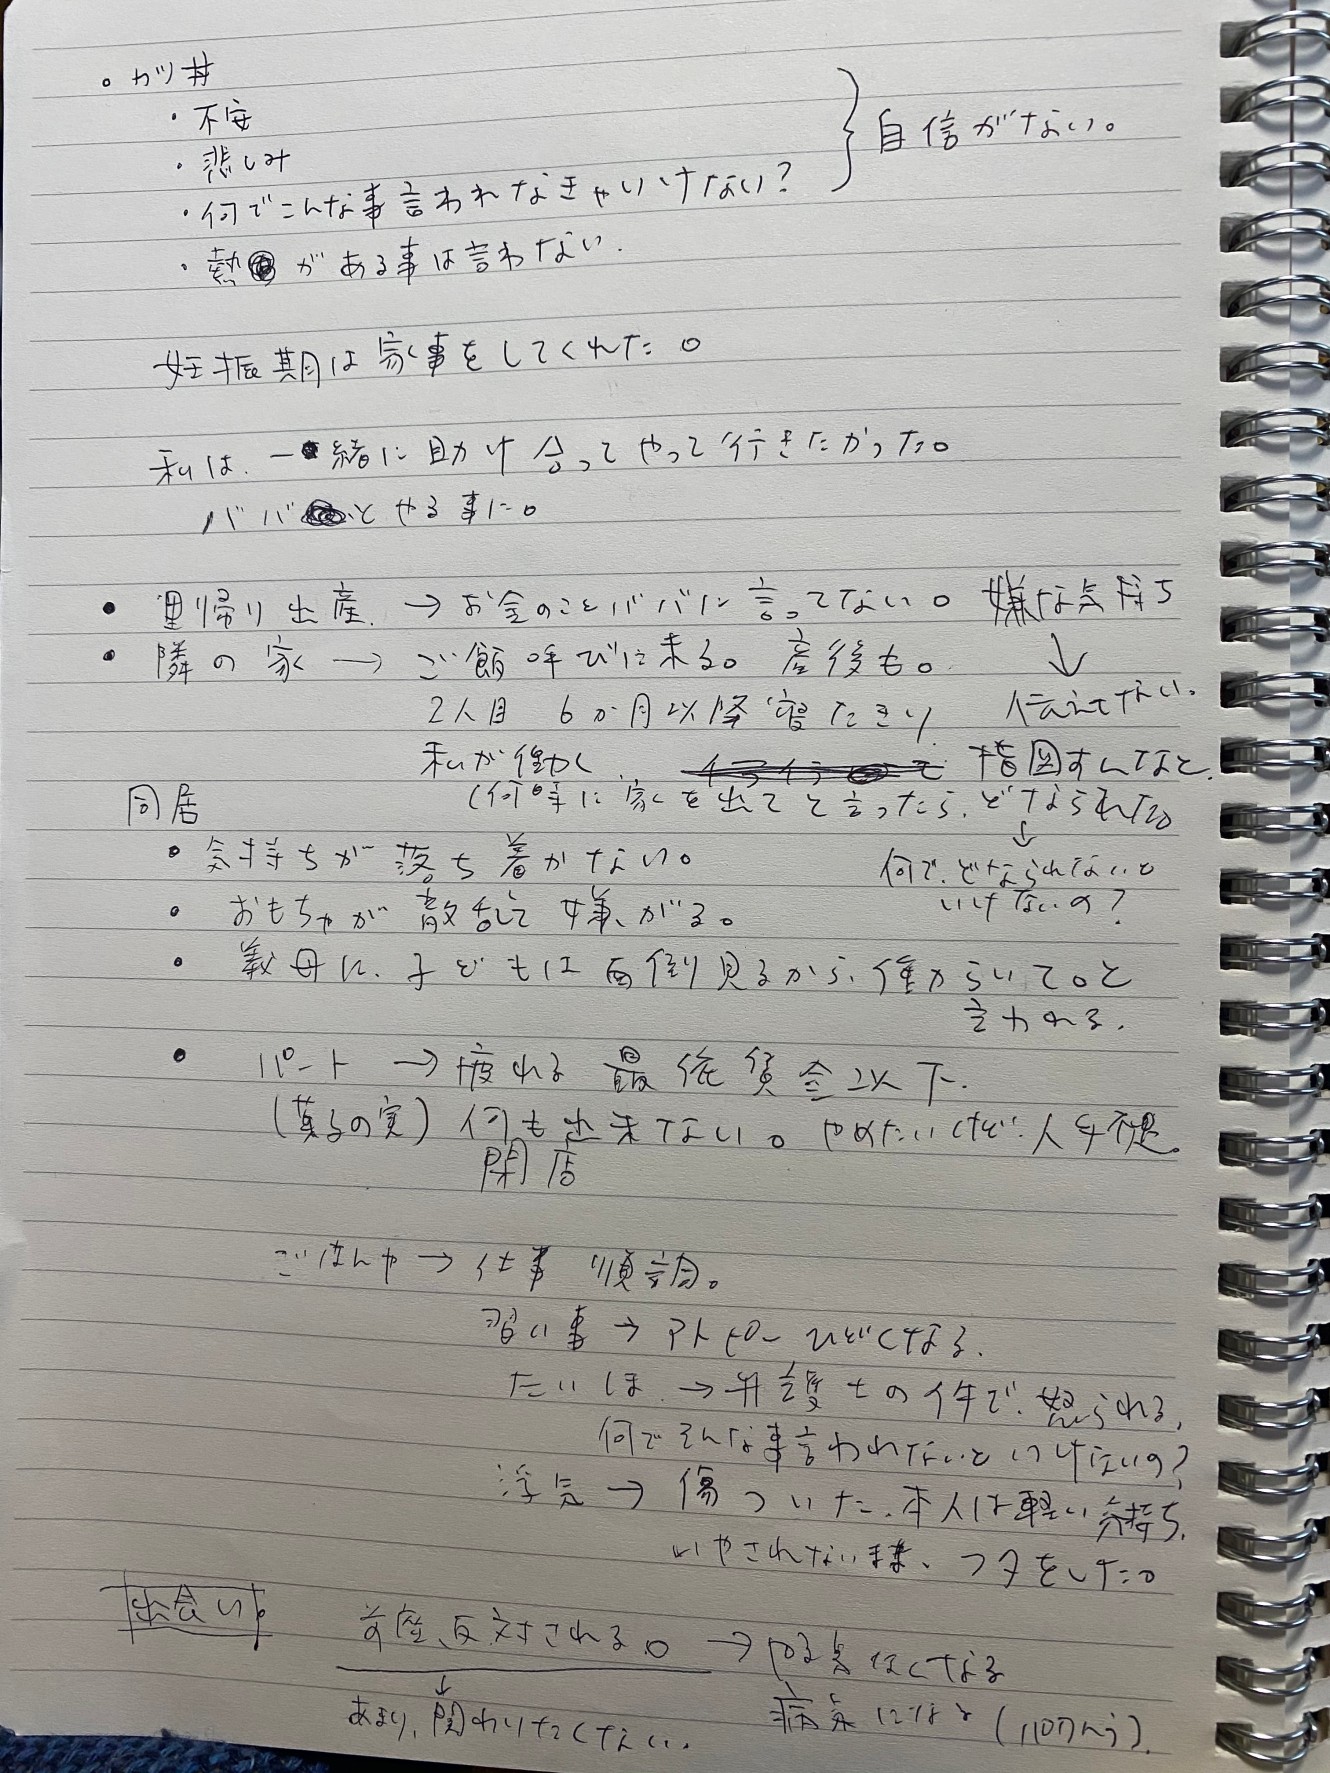 。カツ丼
・不安
・悲しみ
・何でこんな事言われなきゃいけない?
自信がない。
・熱がある事は言わない.
妊振期は家事をしてくれた。
私は、一緒に助け合ってやって行きたかった。
ババとやる事に。
• 里帰り出産. → お金のことババに言ってない。嫌な気持ち
↓
伝えてない。
• 隣の家 → ご飯呼びに来る。産後も。
2人目 6か月以降寝たきり
私が働く. 指図すんなと.
(何時に家を出てと言ったら、どなられた。
↓
何で、どなられないと
いけないの?
同居
• 気持ちが落ち着かない。
• おもちゃが散乱して嫌がる。
• 義母に、子どもは面倒見るから、働いて。と
言われる.
• パート → 疲れる 最低賃金以下.
(真子の実) 何も出来てない。やめたいけど、人手不足。
閉店
ごはんや → 仕事 順調。
習い事 → アトピーひどくなる.
たいほ. → 弁護士の件で、怒られる.
何でそんな事言われないといけないの?
浮気 → 傷ついた、本人は軽い気持ち.
いやされないまま、フタをした。
出会い
反対される。 → やる気なくなる
↓
あまり、関わりたくない.
病気になる